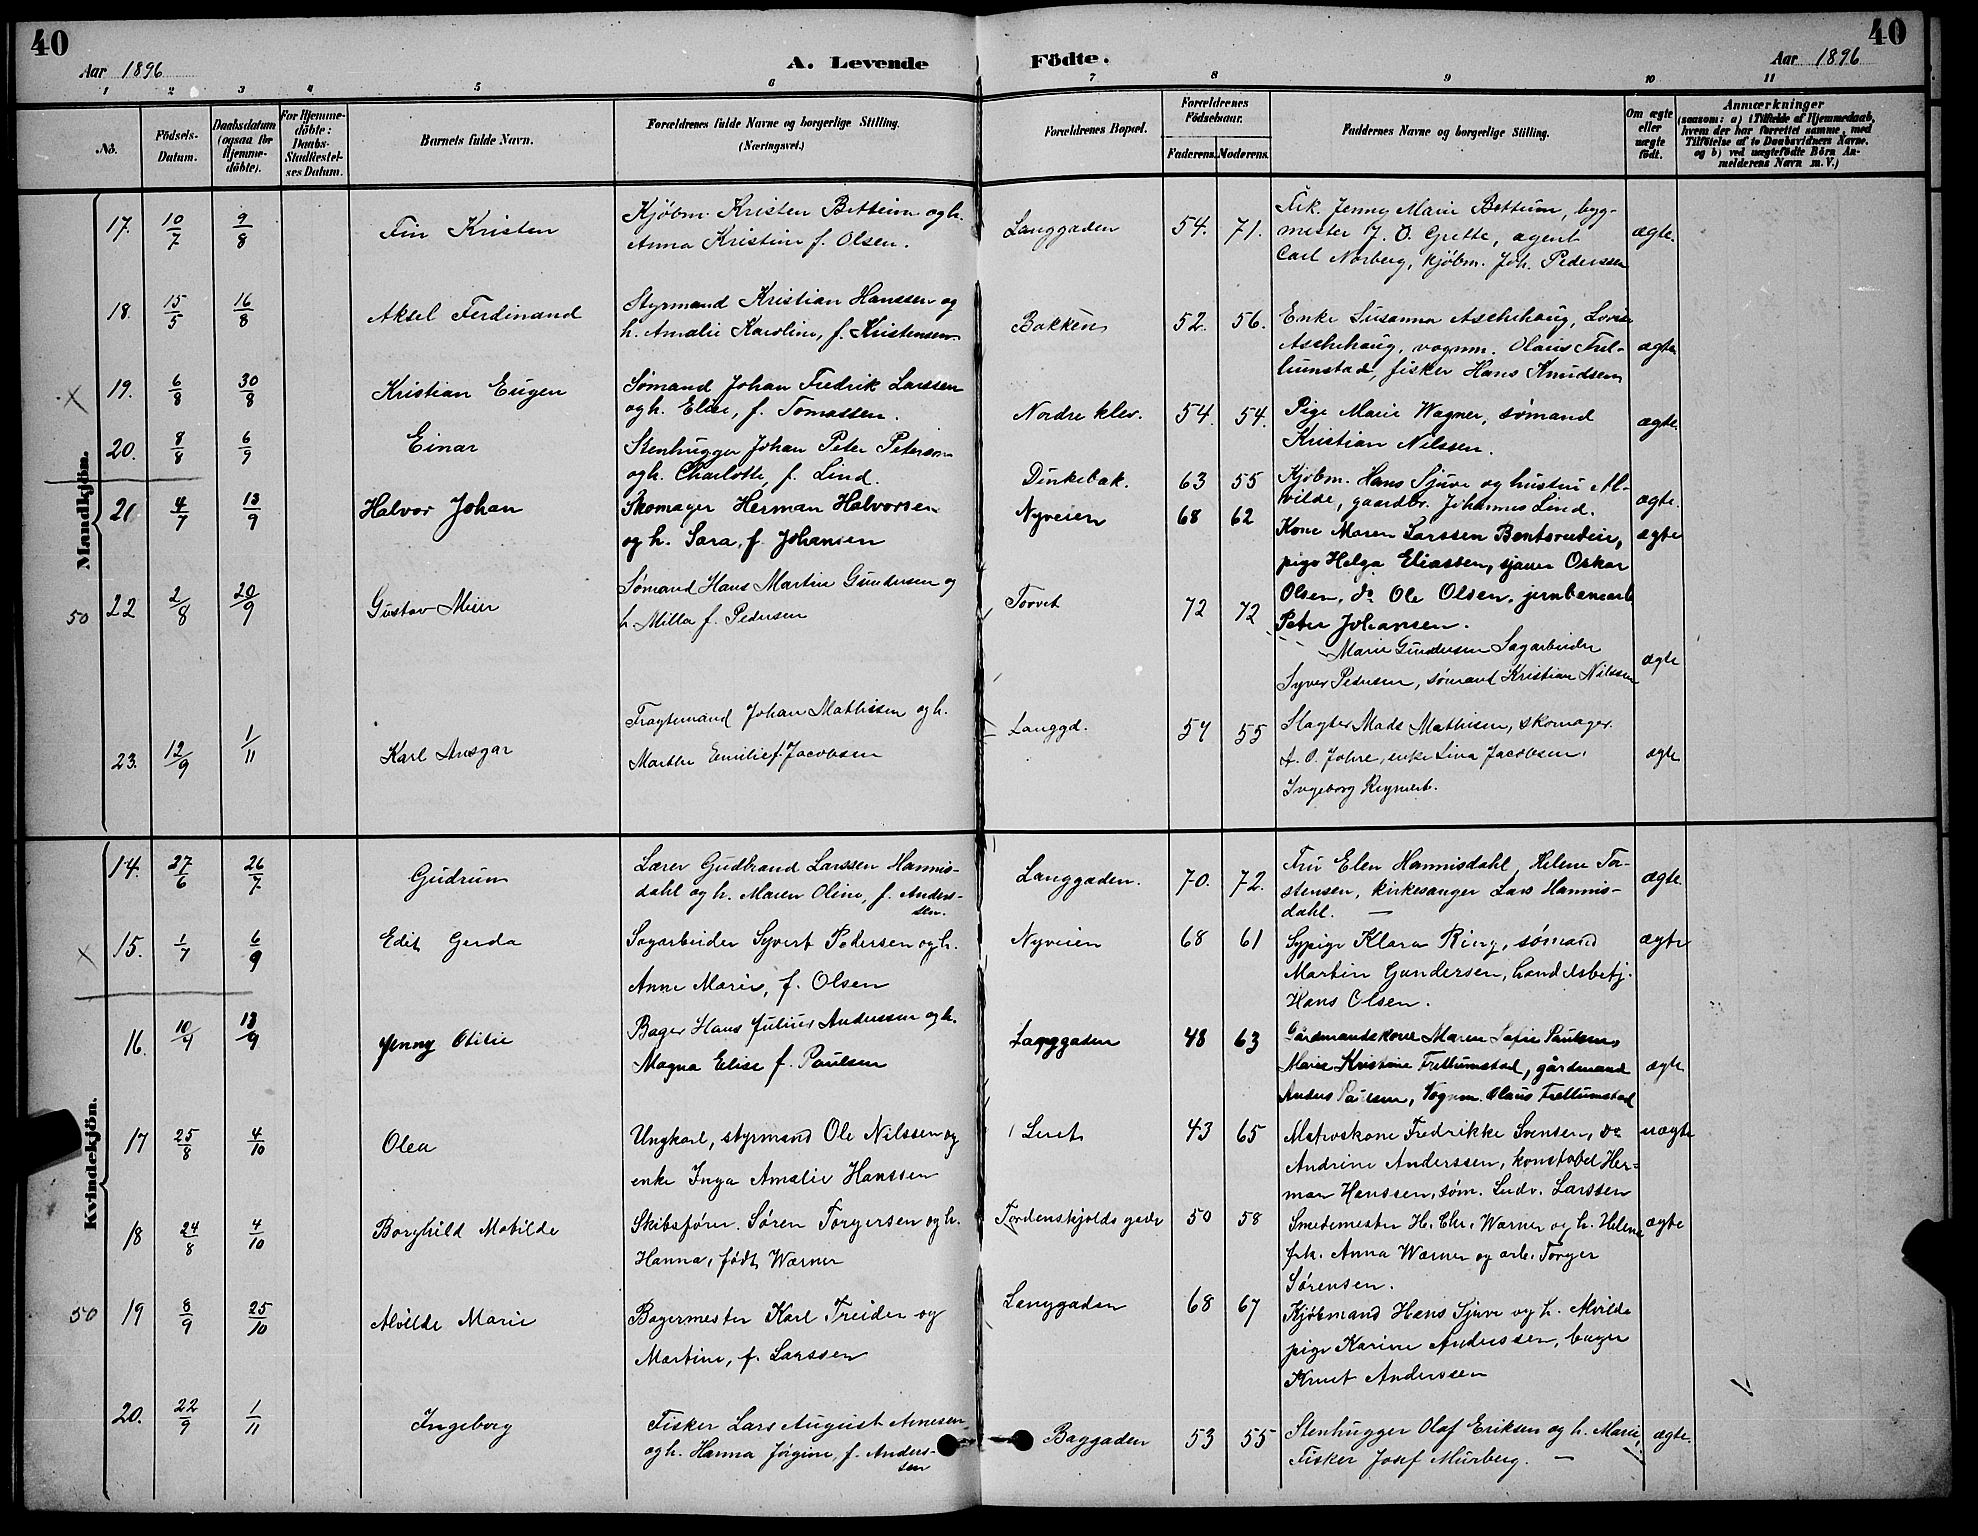 40
Aar 1896
A. Levende
Födte.
Aar 1896
40
1 2 3 4 5 6 7 8 9 10 11
No.
Födsels-Datum.
Daabsdatum (ogsaa for Hjemme-döbte).
For Hjemme-döbte: Daabs-Stadfæstel-ses Datum.
Barnets fulde Navn.
Forældrenes fulde Navne og borgerlige Stilling.
(Næringsvei.)
Forældrenes Bopæl.
Forældrenes Födselsaar.
Faderens. Moderens.
Faddernes Navne og borgerlige Stilling.
Om ægte eller uægte födt.
Anmærkninger
(saasom: a) i Tilfælde af Hjemmedaab,
hvem der har forrettet samme, med
Tilföielse af to Daabsvidners Navne.
og b) ved uægtefödte Börn An-
melderens Navn m. V.)
Mandkjön.
17. 10/7 9/8 Fin Kristen
Kjøbm. Kristen Bottum og h.
Anna Kristine f. Olsen.
Langgaden 54. 71.
Frk. Jenny Marie Bottum, byg-
mester J. O. Grette, agent
Carl Norberg, kjøbm. Joh. Pedersen
ægte.
18. 15/5 16/8 Aksel Ferdinand
Styrmand Kristian Hanssen og
h. Amalie Karoline, f. Kristensen
Bakken 52. 56.
Enke Susanna Aschehoug, Lovise
Aschehoug, vognm. Olaus Fret-
lumstad, fisker Hans Knudsen
ægte
19. 6/8 30/8 Kristian Eugen
Sømand Johan Fredrik Larssen
og h. Elise, f. Tomassen.
Nordre klev. 54. 54.
Pige Marie Wagner, sømand
Kristian Nilssen.
ægte.
20. 8/8 6/9 Einar
Stenhugger Johan Peter Peterson
og h. Charlotte, f. Lind.
Dinkebak. 63 55
Kjøbm. Hans Sjuve og hustru Al-
vilde, gaardbr. Johannes Lind.
ægte.
21 4/7 13/9 Halvor Johan
Skomager Herman Halvorsen
og h. Sara, f. Johansen
Nyveien 68 62
Kone Maren Larssen Bentsrudeie,
pige Helga Eliassen, sjauer Oskar
Olsen, do Ole Olsen, jernbanearb
Peter Johansen.
ægte
50 22 2/8 20/9 Gustav Meier
Sømand Hans Martin Gundersen og
h. Milla f. Pedersen
Torvet 72 72
Marie Gundersen Sagarbeider
Syver Pedersen, sømand Kristian Nilssen
ægte
23. 12/9 1/11 Karl Ansgar
Fragtemand Johan Mathisen og h.
Marthe Emilie f. Jacobsen
Langgd. 54 55
Slagter Mads Mathisen, skomager
A. O. Johre, enke Lina Jacobsen,
Ingeborg Reymert.
ægte
Kvindekjön.
14. 27/6 26/7 Gudrun
Lærer Gudbrand Larssen Hannis-
dahl og h. Maren Oline, f. Anders-
sen.
Langgaden. 70. 72.
Fru Elen Hannisdahl, Helene Tor-
stensen, kirkesanger Lars Hannis-
dahl. —
ægte
15. 1/7 6/9 Edit Gerda
Sagarbeider Syvert Pedersen og h.
Anne Marie, f. Olsen
Nyveien 68 61
Sypige Klara Ring, sømand
Martin Gundersen, handelsbetj.
Hans Olsen.
ægte
16. 10/9 13/9 Jenny Otilie
Bager Hans Julius Anderssen og h.
Magna Elise f. Paulsen
Langgaden 48 63
Gårdmandskone Maren Sofie Paulsen,
Marie Kristine Fretlumstad, gårdmand
Anders Paulsen, Vognm. Olaus Fretlumstad
ægte
17 25/8 4/10 Olea
Ungkarl, styrmand Ole Nilssen og
enke Inga Amalie Hanssen
Leret 43 65
Matroskone Fredrikke Svensen, do
Andrine Anderssen, konstabel Her-
man Hanssen, søm. Ludv. Larssen
uægte
18 24/8 4/10 Borghild Mabilde
Skibsfører. Søren Torgersen og h.
Hanna, født Warner
Tordenskjolds gade 50 58
Smedemester H. Chr. Warner og h. Helene
frk. Anna Warner og arb. Torger
Sørensen.
ægte
50 19 8/9 25/10 Alvilde Marie
Bagermester Karl Treider og
Martine, f. Larssen
Langgaden 68 67
Kjøbmand Hans Sjuve og h. Alvilde
pige Karine Anderssen, bager
Knut Anderssen
20. 22/9 1/11 Ingeborg
Fisker Lars August Arnesen
og h. Hanna Jørgine, f. Anders-
sen
Baggaden 53 55
Stenhugger Olaf Eriksen og h. Marie,
Fisker Josef Murberg. —
ægte.